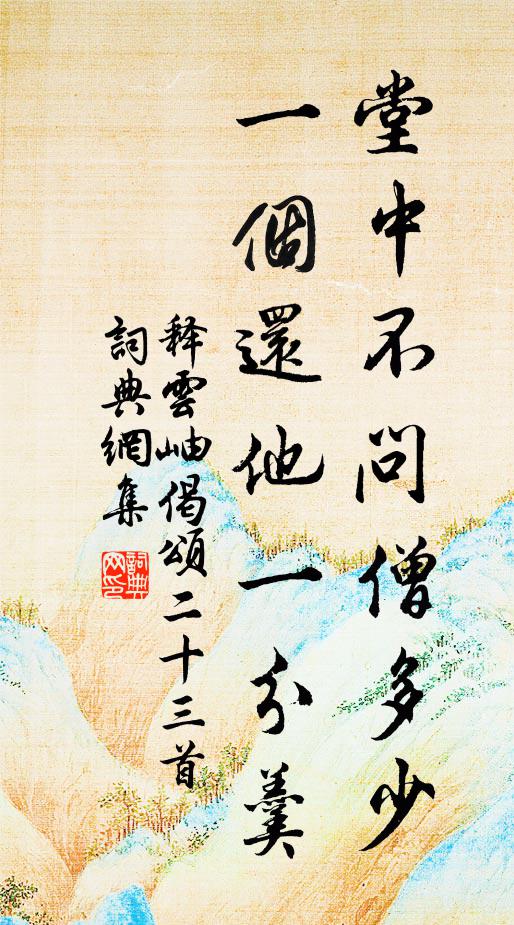 堂中不問僧多少
一個還他一分羹
释雲岫偈頌二十三首
詞典網集
詞典